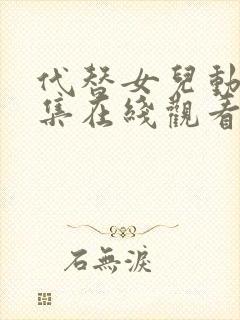 代替女兒動
集在綫觀看
石無淚